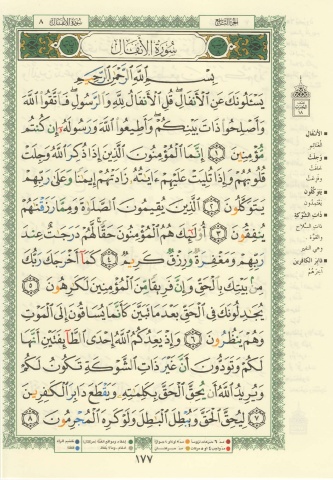 الجزء التاسع
سورة الأنفال ٨
سُورَةُ الأَنفَالِ
بِسْمِ اللَّهِ الرَّحْمَٰنِ الرَّحِيمِ
يَسْـَٔلُونَكَ عَنِ الْأَنفَالِ قُلِ الْأَنفَالُ لِلَّهِ وَالرَّسُولِ فَاتَّقُوا اللَّهَ
وَأَصْلِحُوا ذَاتَ بَيْنِكُمْ وَأَطِيعُوا اللَّهَ وَرَسُولَهُ إِن كُنتُم
مُّؤْمِنِينَ ١ إِنَّمَا الْمُؤْمِنُونَ الَّذِينَ إِذَا ذُكِرَ اللَّهُ وَجِلَتْ
قُلُوبُهُمْ وَإِذَا تُلِيَتْ عَلَيْهِمْ ءَايَٰتُهُ زَادَتْهُمْ إِيمَٰنًا وَعَلَىٰ رَبِّهِمْ
يَتَوَكَّلُونَ ٢ الَّذِينَ يُقِيمُونَ الصَّلَوٰةَ وَمِمَّا رَزَقْنَٰهُمْ
يُنفِقُونَ ٣ أُولَٰئِكَ هُمُ الْمُؤْمِنُونَ حَقًّا لَّهُمْ دَرَجَٰتٌ عِندَ
رَبِّهِمْ وَمَغْفِرَةٌ وَرِزْقٌ كَرِيمٌ ٤ كَمَا أَخْرَجَكَ رَبُّكَ
مِن بَيْتِكَ بِالْحَقِّ وَإِنَّ فَرِيقًا مِّنَ الْمُؤْمِنِينَ لَكَٰرِهُونَ ٥
يُجَٰدِلُونَكَ فِي الْحَقِّ بَعْدَمَا تَبَيَّنَ كَأَنَّمَا يُسَاقُونَ إِلَى الْمَوْتِ
وَهُمْ يَنظُرُونَ ٦ وَإِذْ يَعِدُكُمُ اللَّهُ إِحْدَى الطَّائِفَتَيْنِ أَنَّهَا
لَكُمْ وَتَوَدُّونَ أَنَّ غَيْرَ ذَاتِ الشَّوْكَةِ تَكُونُ لَكُمْ
وَيُرِيدُ اللَّهُ أَن يُحِقَّ الْحَقَّ بِكَلِمَٰتِهِ وَيَقْطَعَ دَابِرَ الْكَٰفِرِينَ
٧ لِيُحِقَّ الْحَقَّ وَيُبْطِلَ الْبَٰطِلَ وَلَوْ كَرِهَ الْمُجْرِمُونَ ٨
الأنفال
الغنائم
وجلت
يتوكلون
يعتمدون
ذات الشوكة
ذات السلاح
والقوة
وهي النفير
دابر الكافرين
آخرهم
١٧٧